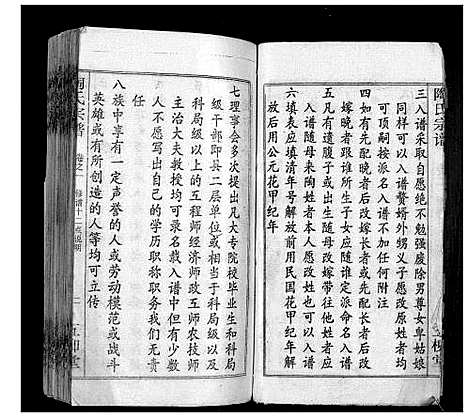 陶氏宗谱
三入谱采取自愿绝不勉强废除男尊女卑姑娘
同样可以入谱赘婿外甥义子愿改原姓者均
可顶嗣按派名入谱不加任何附注
四如有先配晚者后改嫁长者或先配长者后改
嫁晚者跟谁所生子女应谁定派命名入谱
五凡有遗腹子或出生随母改嫁带往他姓者及
入谱随母来陶姓者本人愿改陶姓也可以入谱
六填表应填清年号解放前用民国花甲纪年解
放后用公元花甲纪年
七理事会多次提出凡大专院校毕业生和科局
级干部即县二层单位或相当于科局级以上和
科局级以上的工程师经济师政工师农技师
主治大夫教授均可录名栽入谱中但有少数
人不愿写出自己的学历职称职务我们无责
任
八族中享有一定声誉的人或劳动模范或战斗
英雄或有所创造的人等均可立传
陶氏宗谱
卷之一
修谱十二点说明
五柳堂